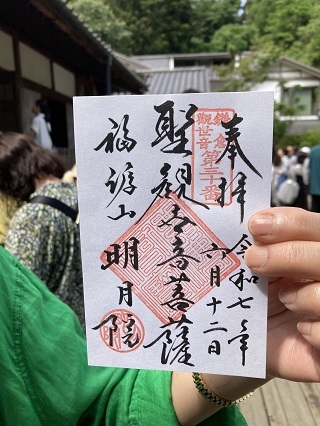 奉拝
令和七年
六月十二日
鎌倉
観世音第三十番
聖観世音菩薩
福源山
明月院